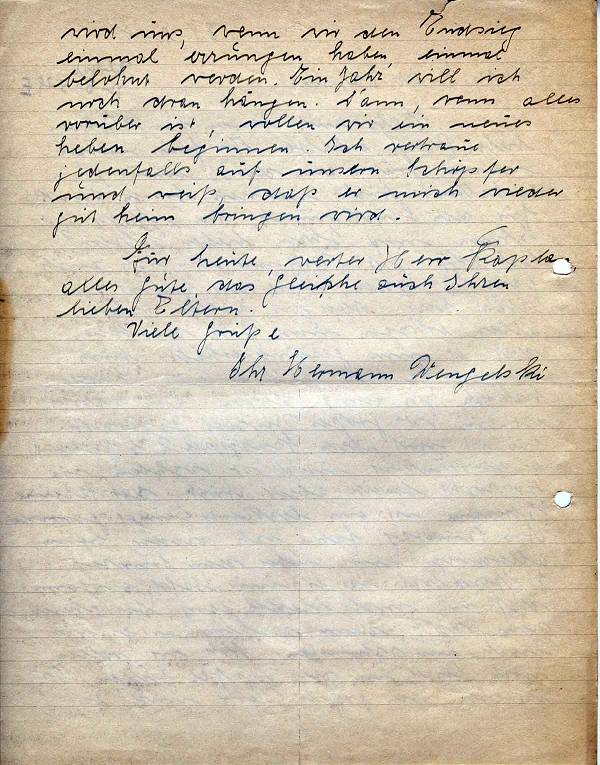 wird uns, wenn wir den Endsieg
einmal errungen haben, einmal
belohnt werden. Ein Jahr, will ich
noch dran hängen. Dann, wenn alles
vorüber ist, wollen wir ein neues
Leben beginnen. Ich vertraue
jedenfalls auf unsern Schöpfer
und weiß, daß er mich wieder
gut heim bringen wird.
Für heute, werter Herr Kaplan,
alles Gute, das gleiche auch Ihren
lieben Eltern.
Viele Grüße
Ihr Hermann Dengelski